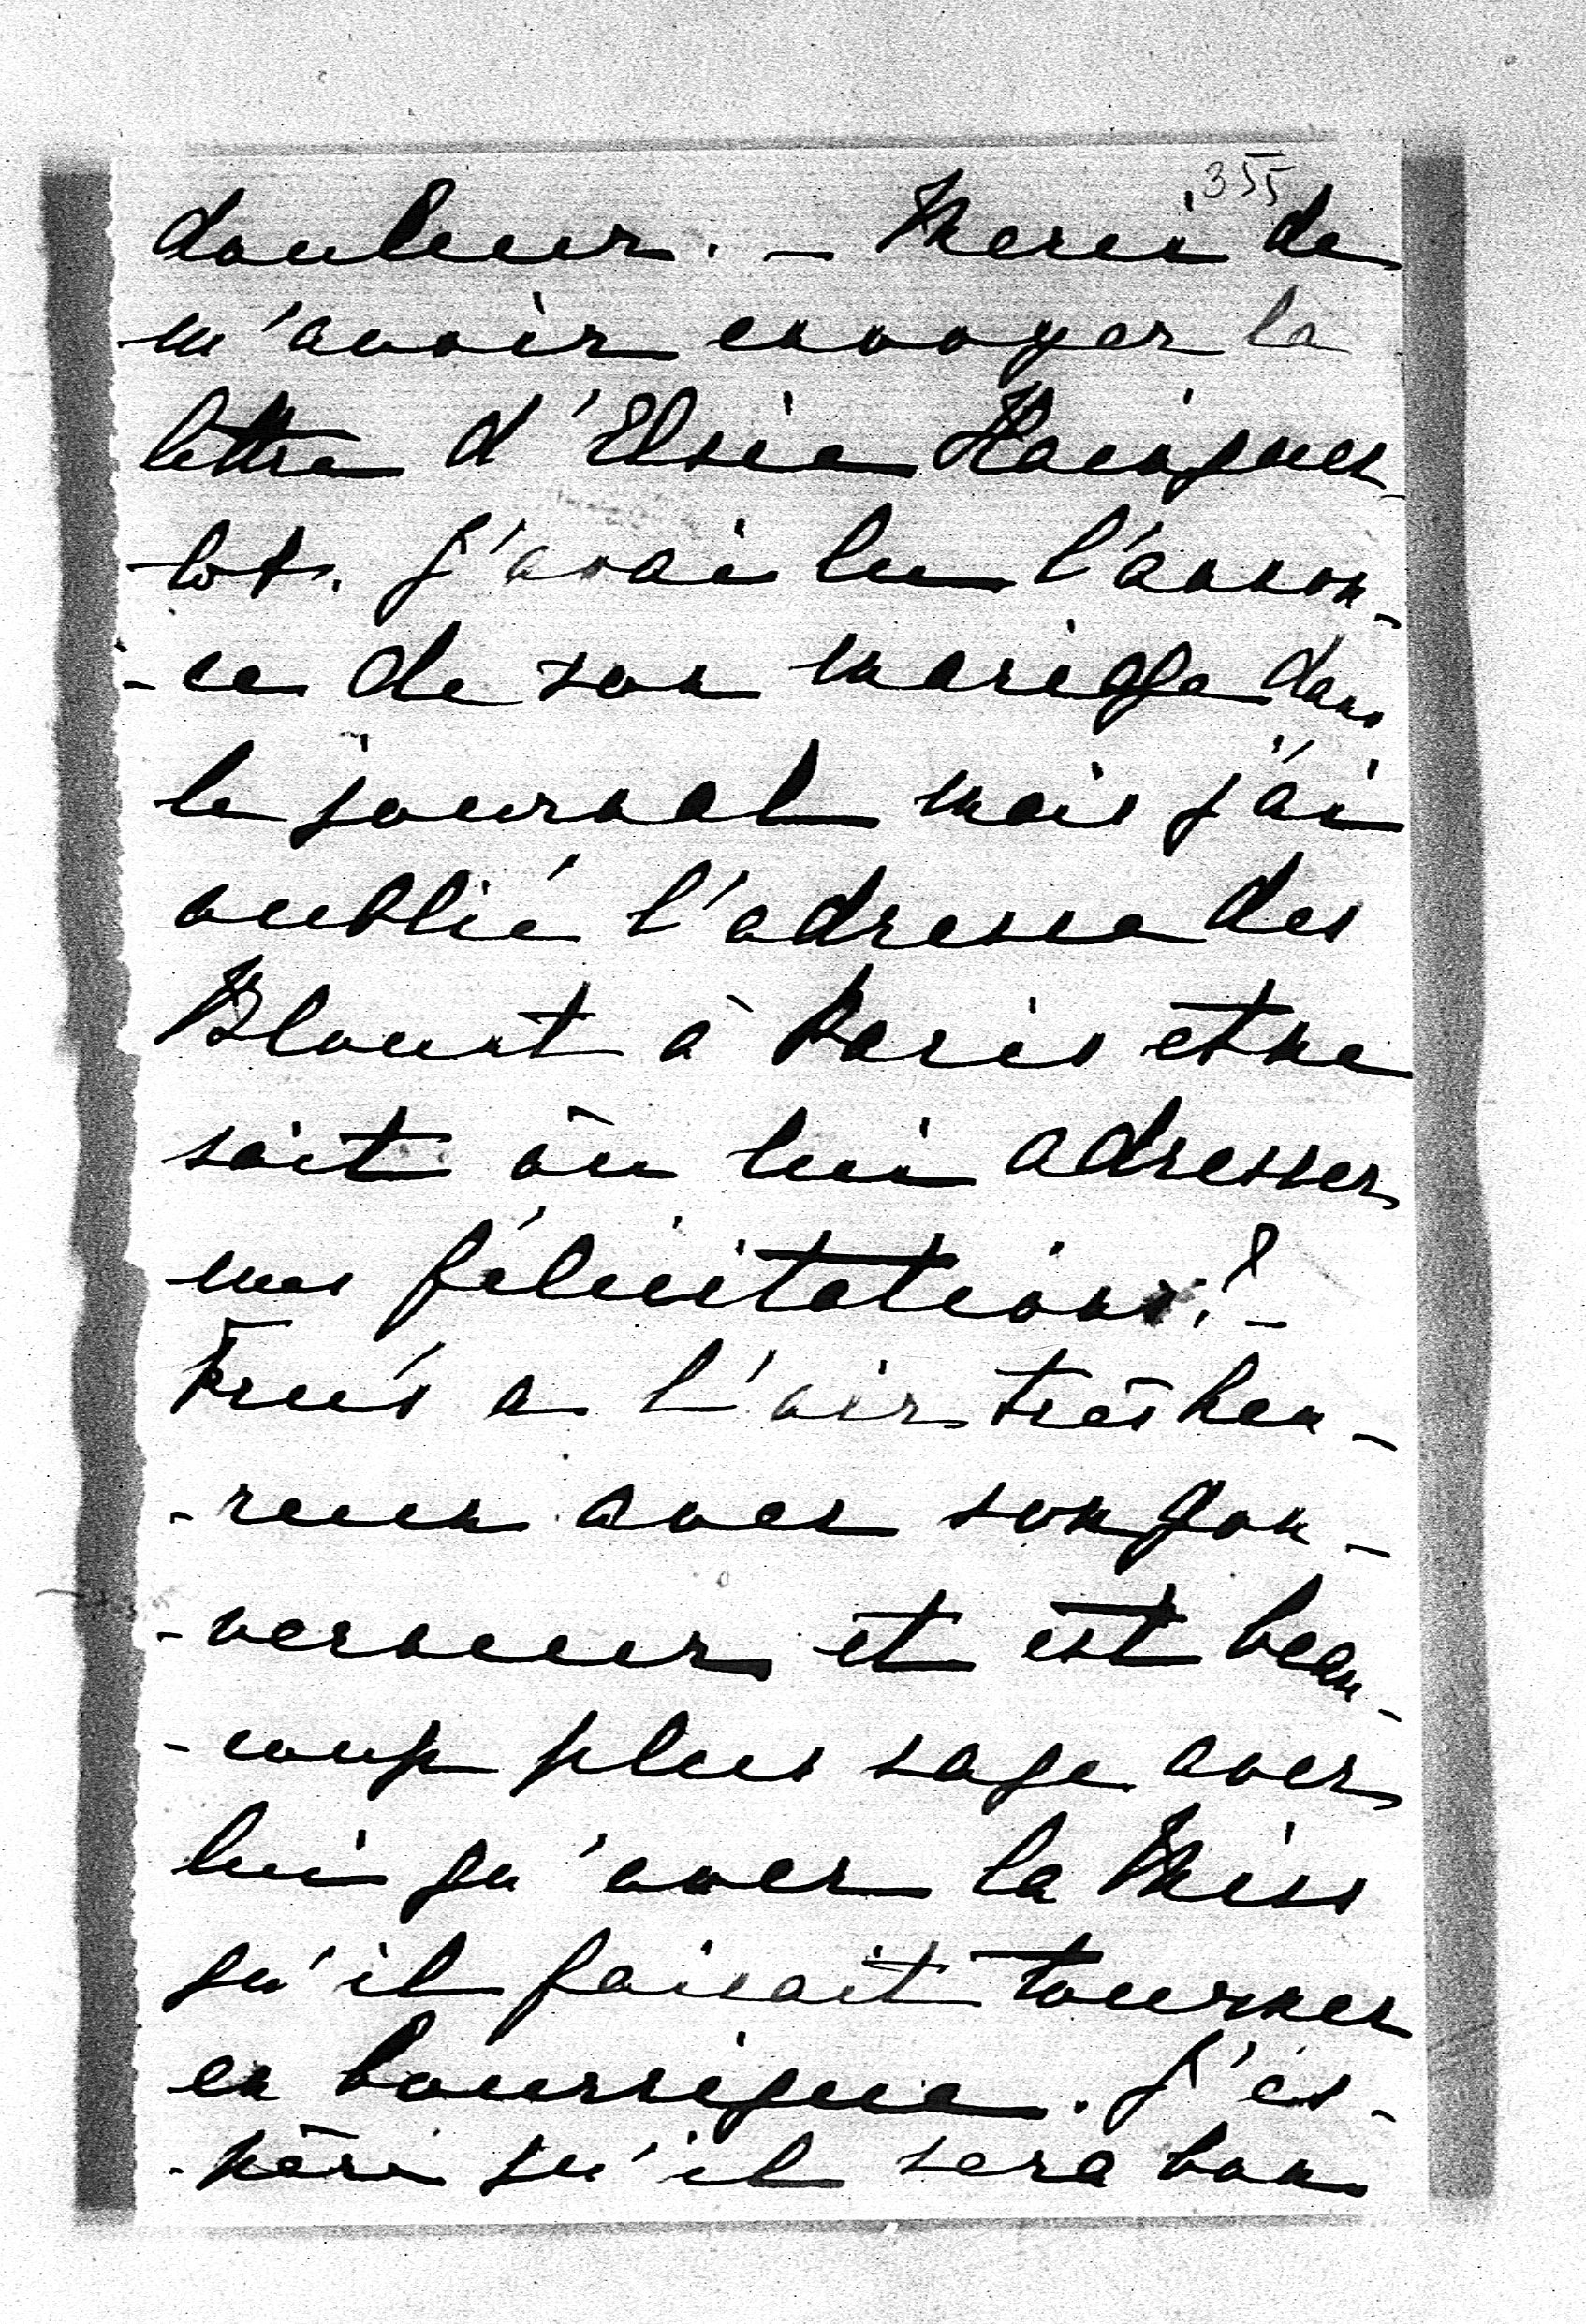 355
douleur. – Merci de
m'avoir envoyer la
lettre d'Elsie Hainguer-
-lot. J'avai lu l'annon-
-ce de son mariage dans
le journal mais j'ai
oublié l'adresse des
Blount à Paris et ne
sait où lui adresser
mes félicitations? –
a l'air très heu-
-reux avec son gou-
-verneur et est beau-
-coup plus sage avec
lui qu'avec la Miss
qu'il faisait tourner
en bourrique. J'es-
-père qu'il sera bon